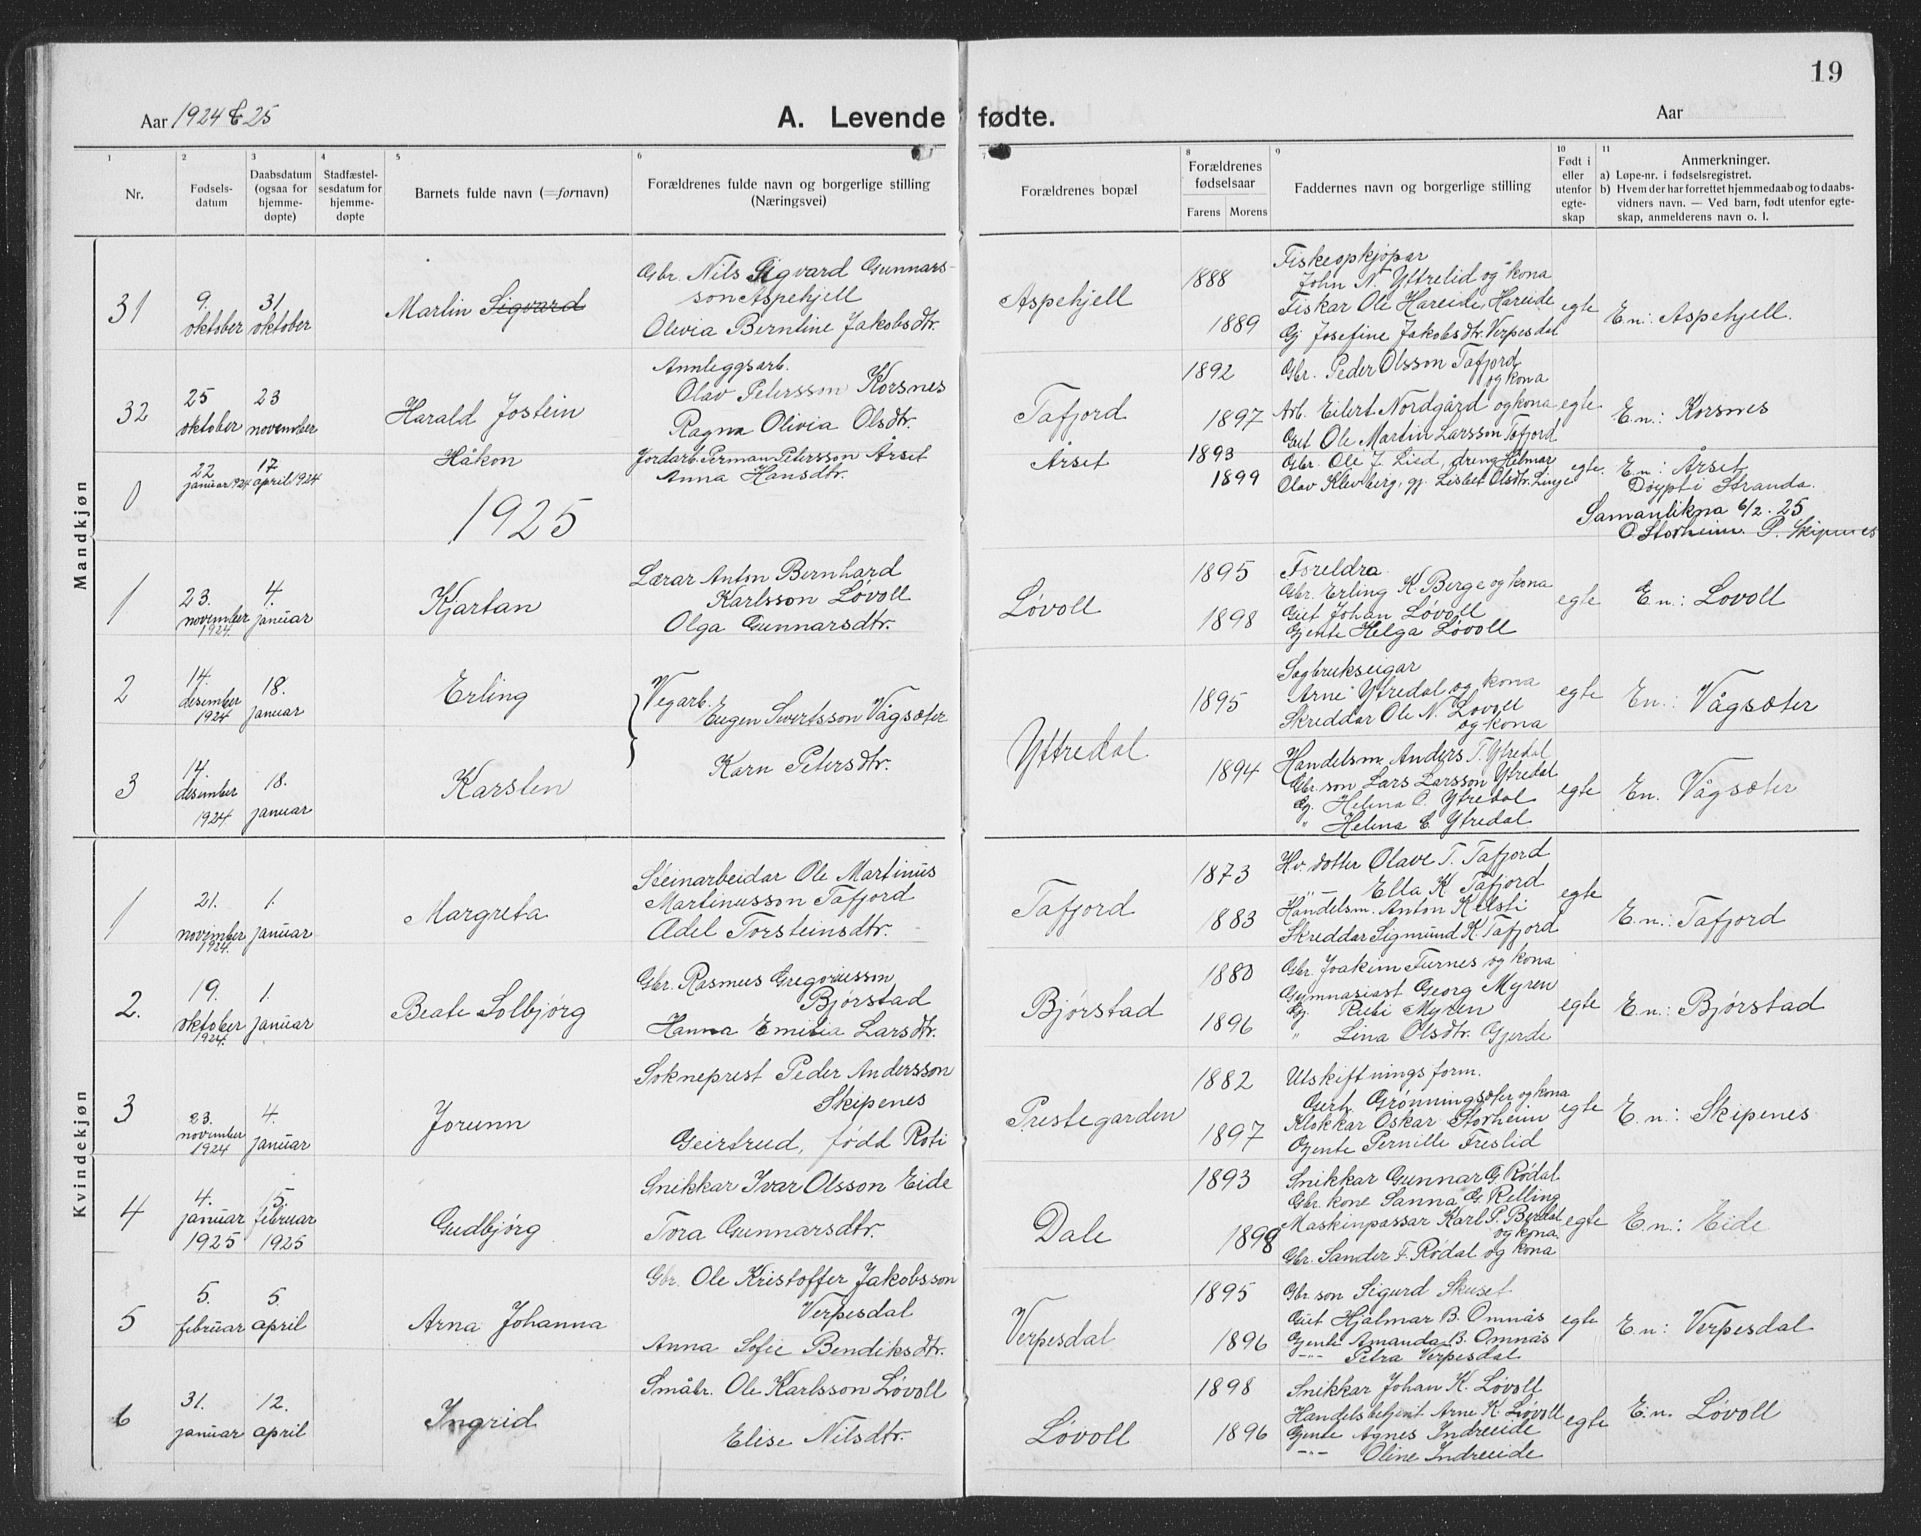 19
Aar 1924 & 25
A. Levende fødte.
Aar
1 2 3 4 5 6 7 8 9 10 11
Nr.
Fødsels-
datum
Daabsdatum
(ogsaa for
hjemme-
døpte)
Stadfæstel-
sesdatum for
hjemme-
døpte
Barnets fulde navn (=fornavn)
Forældrenes fulde navn og borgerlige stilling
(Næringsvei)
Forældrenes bopæl
Forældrenes
fødselsaar
Farens Morens
Faddernes navn og borgerlige stilling
Født i
eller
utenfor
egte-
skap
Anmerkninger.
a) Løpe-nr. i fødselsregistret.
b) Hvem der har forrettet hjemmedaab og to daabs-
vidners navn. — Ved barn, født utenfor egte-
skap, anmelderens navn o. l.
Mandkjøn
31
9. oktober
31. oktober
Marlin Sigvard
Gbr. Nils Sigvard Gunnars-
son Aspehjell
Olivia Berntine Jakobsdtr.
Aspehjell
1888
1889
Fiskeopkjøpar
John N. Yttrelid og kona
Fiskar Ole Hareide, Hareide
Gj Josefine Jakobsdtr. Verpesdal
egte
E.n.: Aspehjell.
32
25 oktober
23 november
Harald Jostein
Annleggsarb.
Olav Petersson Korsnes
Ragna Olivia Olsdtr.
Tafjord
1892
1897
Gbr. Peder Olsson Tafjord
og kona
Arb. Eilert Nordgård og kona
Gut Ole Martin Larsson Tafjord
egte
E.n.: Korsnes
0
22 januar 1924
17 april 1924
Håkon
Jordarb. Herman Petersson Årset
Anna Hansdtr.
Årset
1893
1899
Gbr. Ole J. Lied, dreng Helmar
Olav Klevberg, gj. Lisbet Olsdtr. Linge
egte.
E.n.: Årset
Døypt i Stranda.
Samanlikna 6/2. 25
O. Storheim. P. Skipenes
1925
1
23. november 1924
4. januar
Kjartan
Lærar Anton Bernhard
Karlsson Løvoll
Olga Gunnarsdtr.
Løvoll
1895
1898
Foreldra
Gbr. Erling K. Berge og kona
Gut Johan Løvoll
Gjente Helga Løvoll
egte
E.n.: Lovoll
2
14. desember 1924
18. januar
Erling
Vegarb.
Eugen Sivertsson Vågsæter
Karn Petersdtr.
Yttredal.
1895
1894
Sagbrukseigar
Arne Ytredal og kona
Skreddar Ole N. Lovoll
og kona
egte
E.n.: Vågsæter
3
14 desember 1924
18. januar
Karsten
Handelsm. Anders T. Ytredal
Gbr. son Lars Larsson Ytredal
Gj. Helena O. Ytredal
" Helena E. Ytredal.
egte
E.n. Vågsæter
Kvindekjøn
1
21. november 1924.
1. januar
Margreta
Steinarbeidar Ole Martinus
Martinusson Tafjord
Adel Torsteinsdtr.
Tafjord
1873
1883
Hv. dotter Olave T. Tafjord
—"— Ella K. Tafjord
Handelsm. Anton Kelsti
Skreddar Sigmund K. Tafjord
egte
E.n.: Tafjord
2.
19. oktober 1924.
1. januar
Beate Solbjørg
Gbr. Rasmus Gregoriusson
Bjørstad
Hanna Emilia Larsdtr.
Bjørstad
1880
1896
Gbr. Joakim Furnes og kona
Gymnasiast Georg Myren
Gj. Myren
" Lina Olsdtr. Gjerde
egte
E.n.: Bjørstad
3
23. november 1924
4. januar
Jorunn
Sokneprest Peder Andersson
Skipenes
Geirtrud, født Roti
Prestegarden
1882
1897
Utskiftningsform.
Gert Grønningsæter og kona
Klokkar Oskar Storheim
Gjente Pernille Freslid
egte
E.n.: Skipenes
4
4. januar 1925
5. februar 1925
Gudbjørg
Snikkar Ivar Olsson Eide
Tora Gunnarsdtr.
Dale
1893
1898
Snikkar Gunnar G. Rødal
Gbr. kone Sanna G. Relling
Maskinpassar Karl P. Berdal
og kona.
Gbr. Sander F. Rødal og kona
egte
E.n.: Eide
5
5. februar
5. april
Arna Johanna
Gbr. Ole Kristoffer Jakobsson
Verpesdal
Anna Sofie Bendiksdtr.
Verpesdal
1895
1896
Gbr. son Sigurd Skuset
Gut Hjalmar B. Omnås
Gjente Amanda B. Omnås
—"— Petra Verpesdal
egte
E.n.: Verpesdal
6
31. januar
12. april
Ingrid
Småbr. Ole Karlsson Løvoll
Elise Nilsdtr.
Løvoll
1898
1896
Snikkar Johan K. Løvoll
Handelsbetjent Arne K. Løvoll
Gjente Agnes Indreeide
—"— Oline Indreeide
egte
E.n. Løvoll